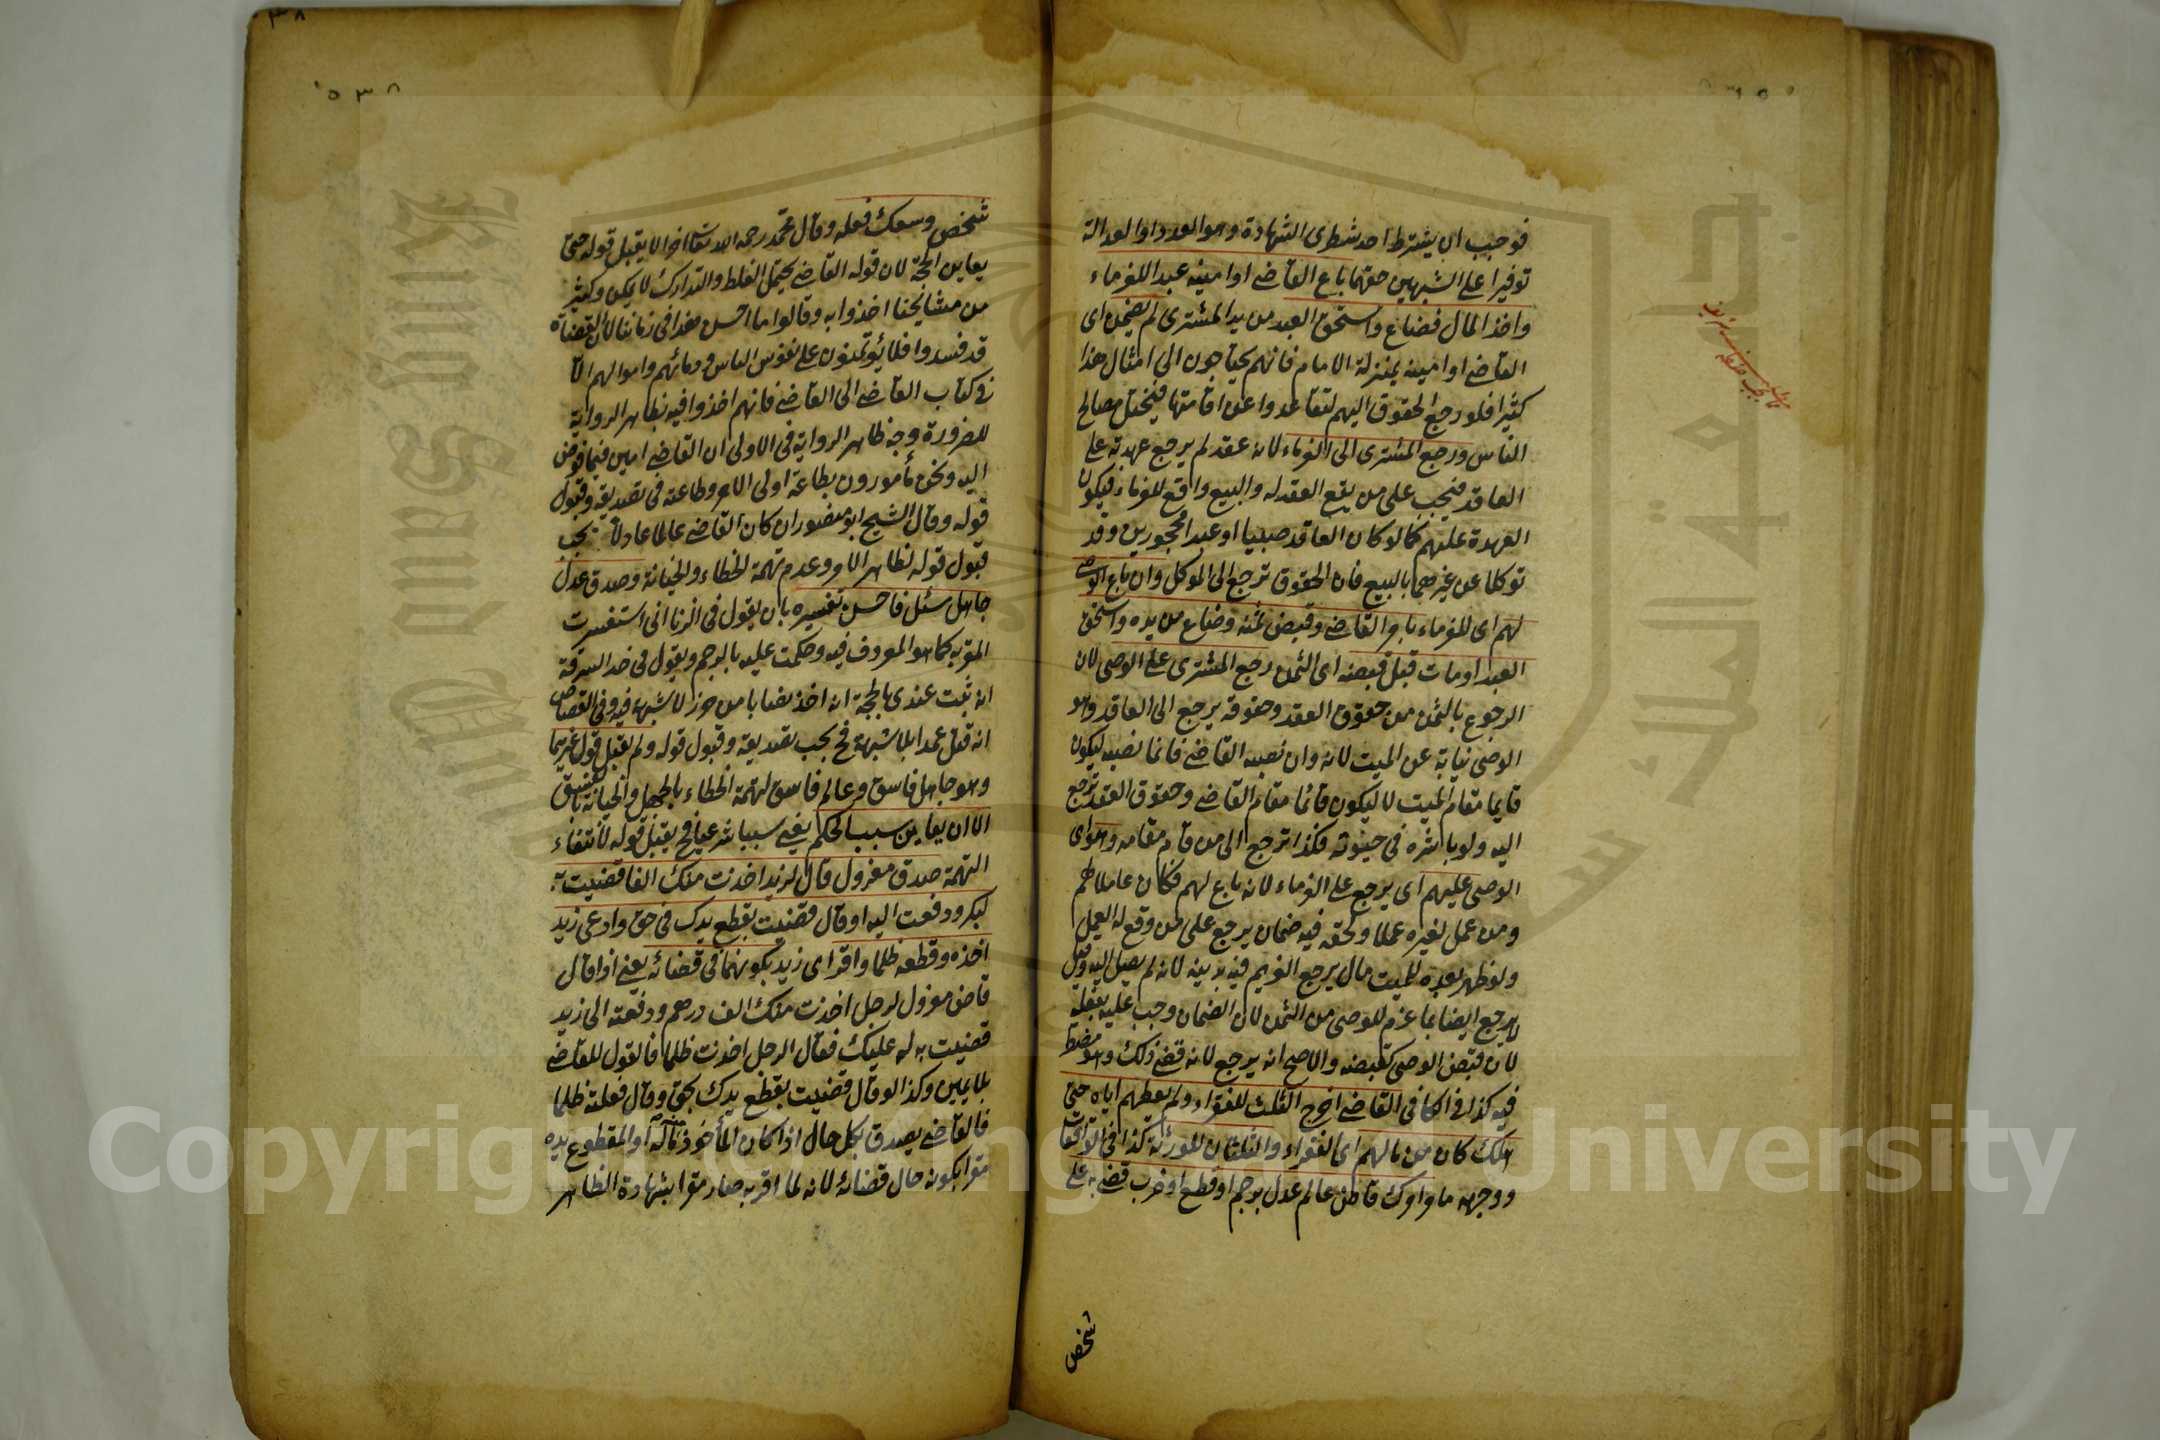 فوجب ان يشترط احد شطرى الشهادة وهو العدد او العدالة
توفيرا على الشبهين حقهما باع القاضى او امينه عبدا للغرماء
واخذ المال فضاع واستحق العبد من يد المشترى لم يضمن اى
القاضى او امينه بمنزلة الامام فانهم يحتاجون الى امثال هذا
كثيرا فلو رجع الحقوق اليهم لتقاعدوا عن اقامتها فيختل مصالح
الناس ورجع المشترى الى الغرماء لانه عقد لم يرجع عهدته على
العاقد فيجب على من يقع العقد له والبيع واقع للغرماء فيكون
العهدة عليهم كما لو كان العاقد صبيا او عبدا محجورين وقد
توكلا عن غيرهما بالبيع فان الحقوق ترجع الى الموكل وان باع الوصى
لهم اى للغرماء بامر القاضى وقبض ثمنه وضاع من يده واستحق
العبد او مات قبل قبضه اى الثمن رجع المشترى على الوصى لان
الرجوع بالثمن من حقوق العقد وحقوقه يرجع الى العاقد وهو
الوصى نيابة عن الميت لانه وان نصبه القاضى فانما نصبه ليكون
قايما مقام الميت لا ليكون قائما مقام القاضى وحقوق العقد ترجع
اليه ولو باشره فى حيوته فكذا ترجع الى من قام مقامه وهو اى
الوصى عليهم اى يرجع على الغرماء لانه باع لهم فكان عاملا لهم
ومن عمل لغيره عملا ولحقه فيه ضمان يرجع على من وقع له العمل
ولو ظهر بعده للميت مال يرجع الغريم فيه بدينه لانه لم يصل اليه وقيل
لا يرجع ايضا بما غرم للوصى من الثمن لان الضمان وجب عليه بفعله
لان قبض الوصى كقبضه والاصح انه يرجع لانه قضى ذلك وهو مضطر
فيه كذا فى الكافى القاضى اخرج الثلث للفقراء ولم يعطهم اياه حتى
هلك كان من مالهم اى الفقراء والثلثان للورثة كذا فى الواقعات
ووجهه ما مر امرك قاض عالم عدل برجم او قطع او ضرب قضى به على
شخص
شخص وسعك فعله وقال محمد رحمه الله تعالى اخرا لا يقبل قوله حتى
يعاين الحجة لان قوله القاضى يحتمل الغلط والتدارك لا يمكن وكثير
من مشايخنا اخذوا به وقالوا ما احسن هذا فى زماننا لان القضاة
قد فسدوا فلا يؤتمنون على نفوس الناس ودمائهم واموالهم الا
فى كتاب القاضى الى القاضى فانهم اخذوا فيه بظاهر الرواية
للضرورة وجه ظاهر الرواية فى الاولى ان القاضى امين فيما فوض
اليه ونحن مأمورون بطاعة اولى الامر وطاعته فى تصديقه وقبول
قوله وقال الشيخ ابو منصور ان كان القاضى عالما عادلا يجب
قبول قوله لظاهر الامر وعدم تهمة الخطاء والخيانة وصدق عدل
جاهل سئل فاحسن تفسيره بان يقول فى الزنا انى استفسرت
المقر به كما هو المعروف فيه وحكمت عليه بالرجم ويقول فى حد السرقة
انه ثبت عندى بالحجة انه اخذ نصابا من حرز لا شبهة فيه وفى القصاص
انه قتل عمدا بلا شبهة فح يجب تصديقه وقبول قوله ولم يقبل قول غيرهما
وهو جاهل فاسق وعالم فاسق لتهمة الخطاء بالجهل والخيانة بالفسق
الا ان يعاين سبب الحكم يعنى سببا شرعيا فح يقبل قوله لانتفاء
التهمة صدق معزول قال لزيد اخذت منك الفا قضيت به
لبكر ودفعت اليه او قال قضيت بقطع يدك فى حق وادعى زيد
اخذه وقطعه ظلما واقر اى زيد بكونهما فى قضائه يعنى اذا قال
قاض معزول لرجل اخذت منك الف درهم ودفعته الى زيد
قضيت به له عليك فقال الرجل اخذت ظلما فالقول للقاضى
بلا يمين وكذا لو قال قضيت بقطع يدك بحق وقال فعلته ظلما
فالقاضى يصدق بكل حال اذا كان المأخوذ ماله او المقطوع يده
مقرا بكونه حال قضائه لانه لما اقر به صار مقرا بشهادة الظاهر
Copyright © King Saud University